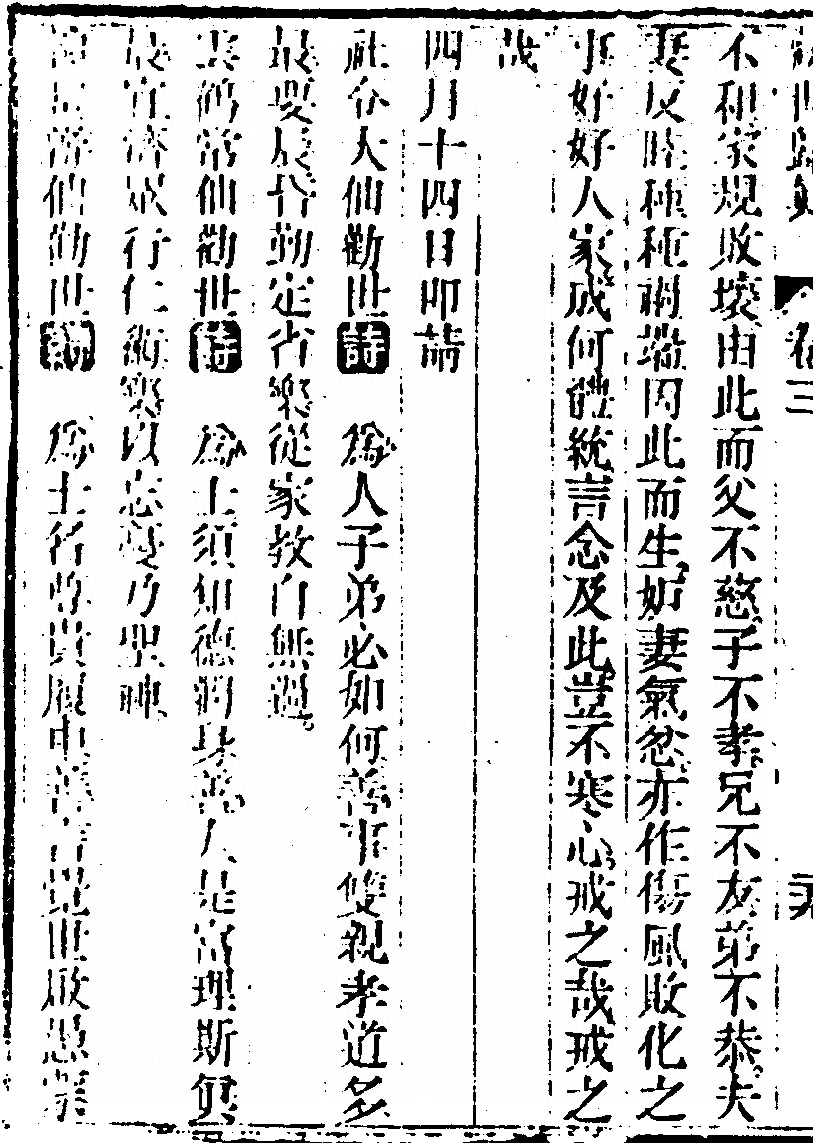 卷三
不和家規敗壞由此而父不慈子不孝兄不友弟不恭夫
妻反睦種種禍端因此而生妒妻氣忿亦作傷風敗化之
事好好人家成何體統言念及此豈不寒心戒之哉戒之
哉
四月十四日叩請
社令大仙勸世詩 為人子弟必如何善事雙親孝道多
最要晨昏勤定省樂從家教自無過
雲鶴常仙勸世詩 為士須知德潤身善人是富理斯真
最宜濟眾行仁術樂以忘憂乃聖神
仙勸世詩 為士名尊貴履中善言覺世啟愚蒙